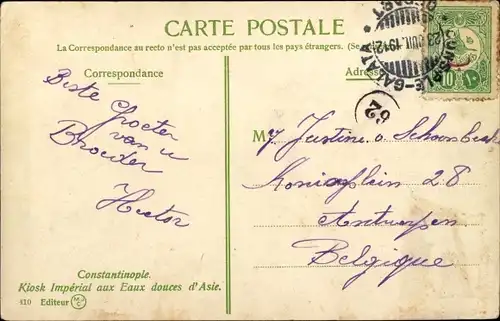 CARTE POSTALE
La Correspondance au recto n'est pas acceptée par tous les pays étrangers. (Se
Correspondance
Adress
GALATA
DEPART
1912
10
62
Beste Groeten
van u
Broeder
Hector
M
Justine v. Schoonbeek
Koniaplein 28
Antwerpen
Belgique
Constantinople.
Kiosk Impérial aux Eaux douces d'Asie.
410 Editeur MJC